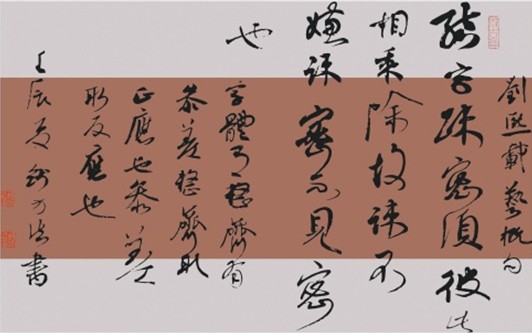 劉熙載藝概句
結字疎密須彼此
相乘除故疎不
嫌疎密不見密
也
字體有整齊有
參差整齊取
正應也參差
取反應也
壬辰夏書